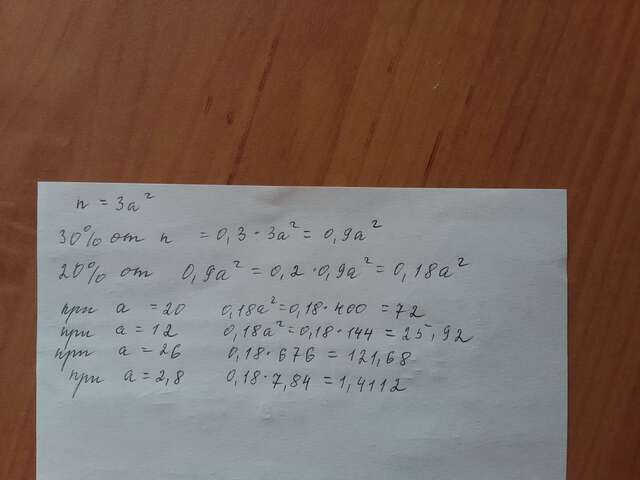 n = 3a²
30% от n = 0,3 · 3a² = 0,9a²
20% от 0,9a² = 0,2 · 0,9a² = 0,18a²
при a = 20 0,18a² = 0,18 · 400 = 72
при a = 12 0,18a² = 0,18 · 144 = 25,92
при a = 26 0,18 · 676 = 121,68
при a = 2,8 0,18 · 7,84 = 1,4112